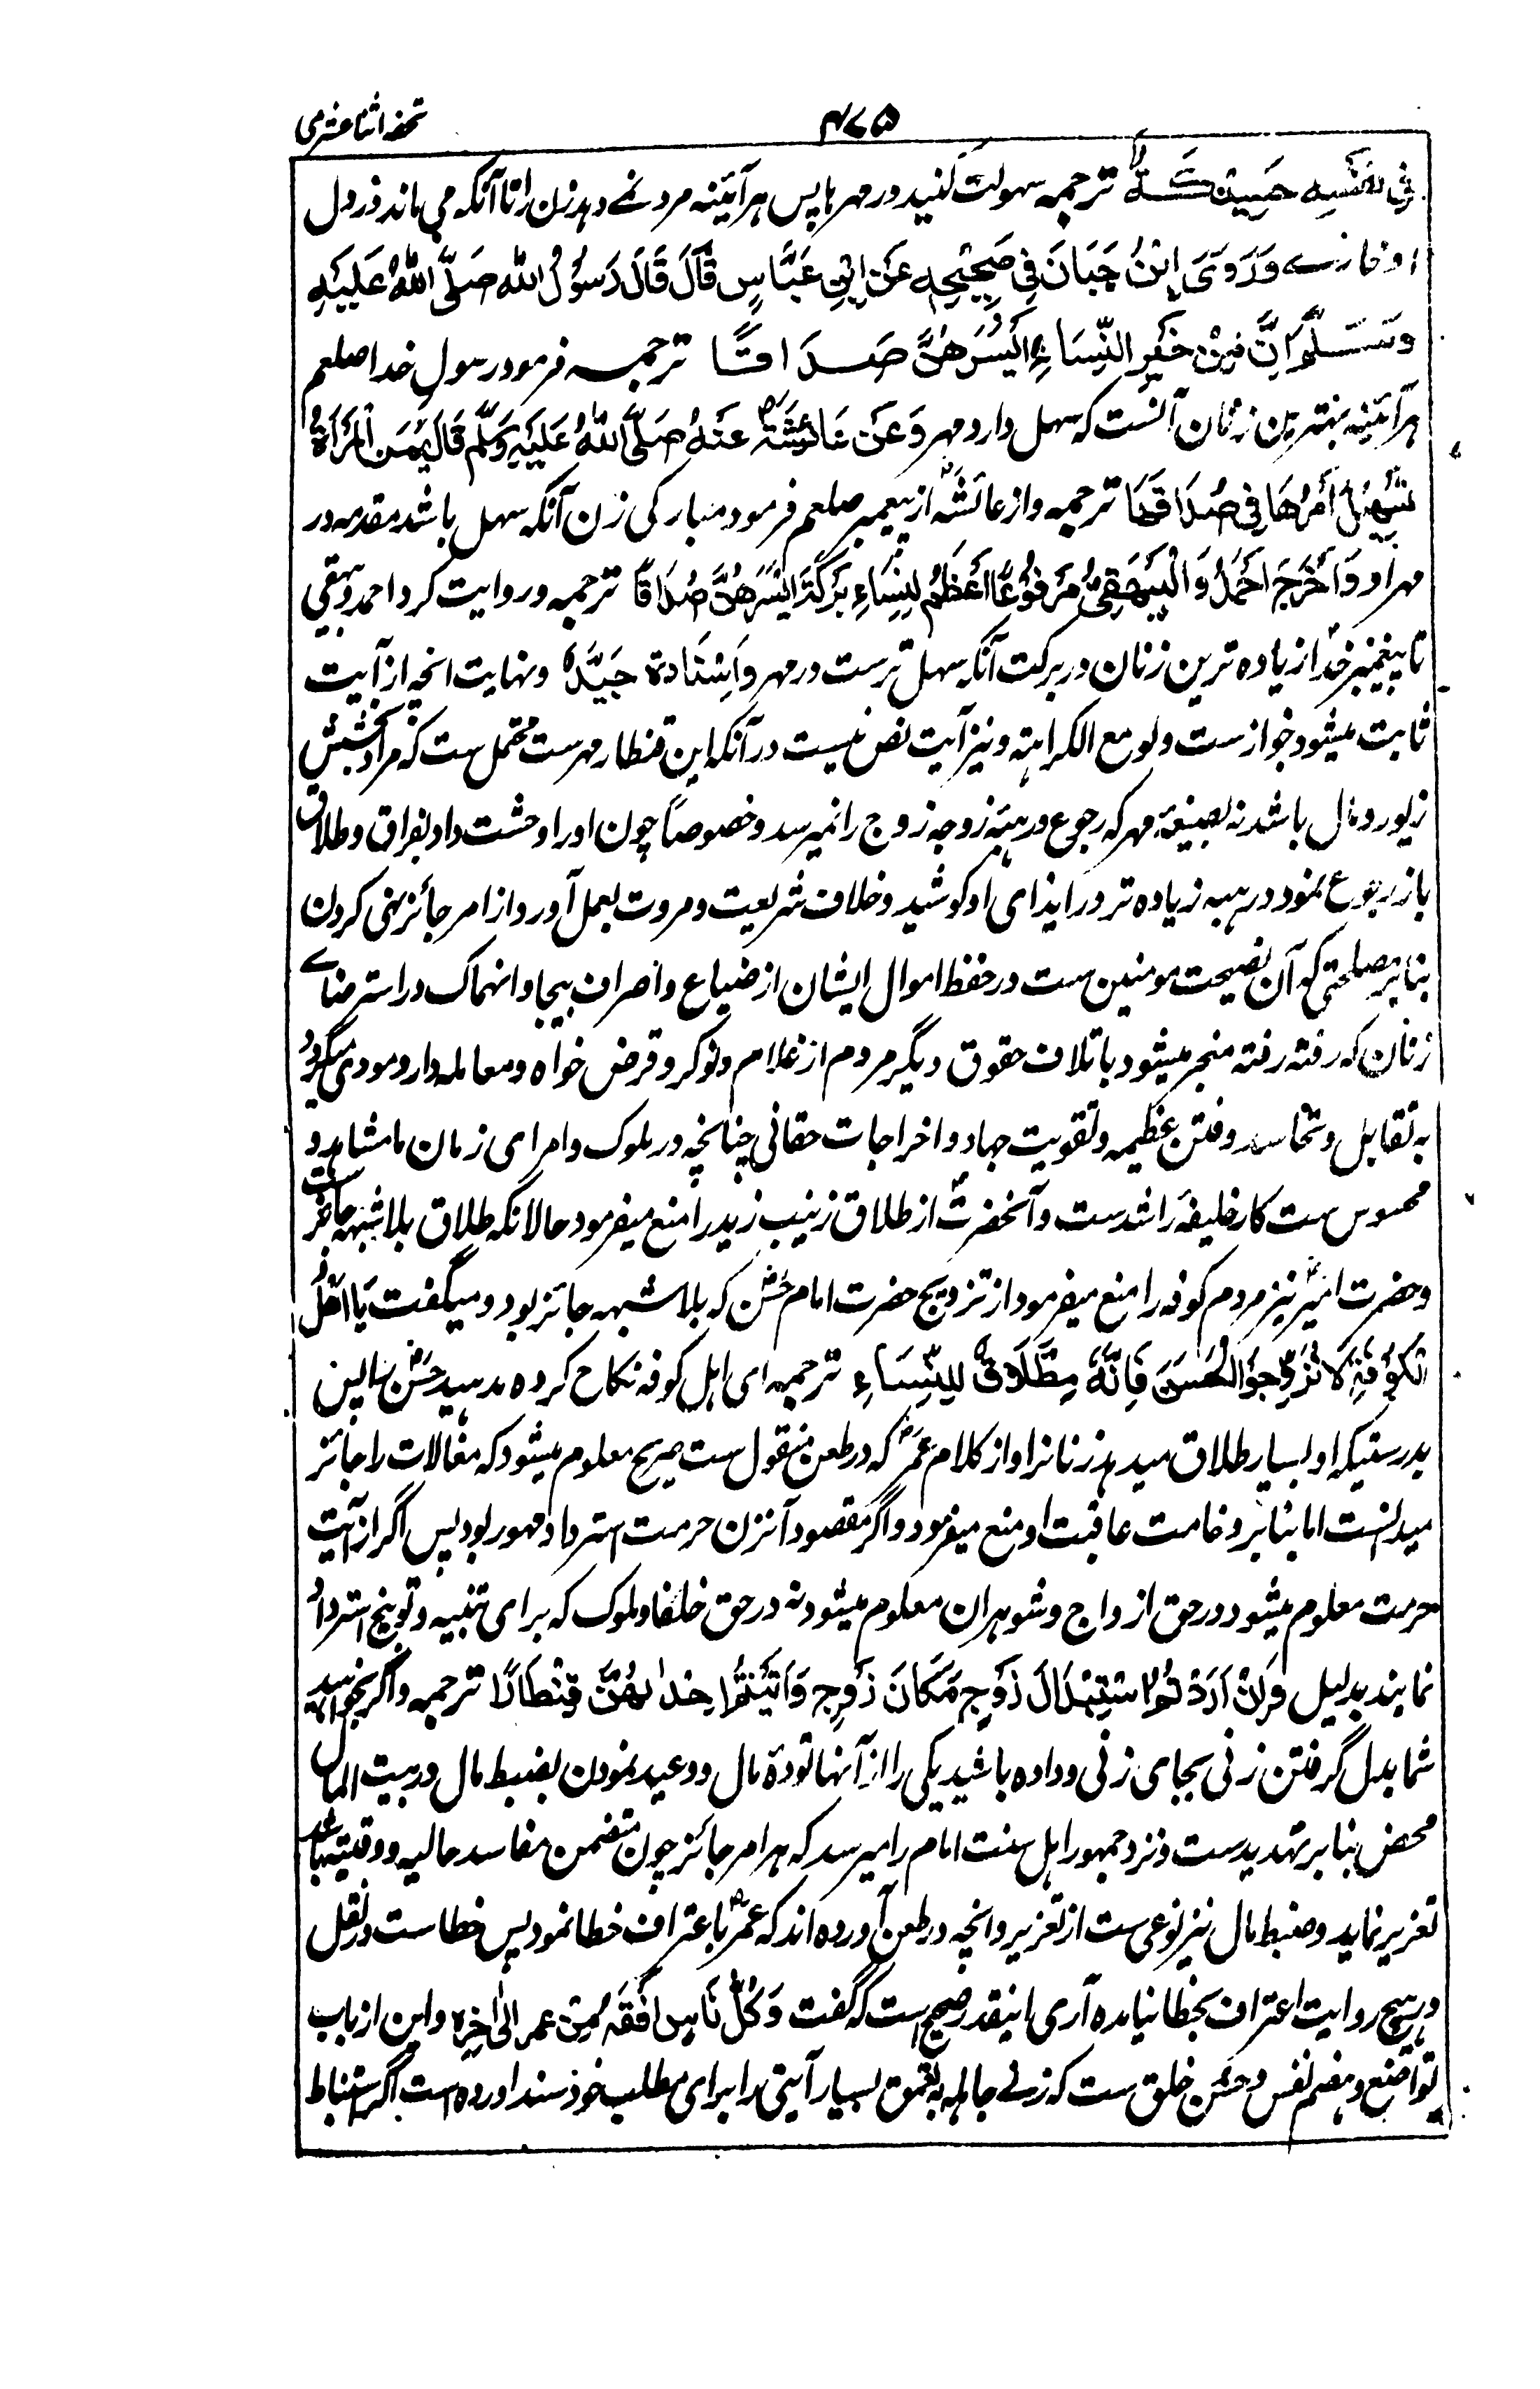 تحفه اثنا عشری
۴۷۵
فِی نَفْسِهِ حَسِیْکَةً ترجمه سهولت کنید در مهرها پس هر آئینه مرد نے دهد زن را تا آنکه می ماند در دل
او خارے وَرَوَی ابْنُ حِبَانَ فِی صَحِیْحِهٖ عَنِ ابْنِ عَبَّاسٍ قَالَ قَالَ رَسُوْلُ اللّٰهِ صَلَّی اللّٰهُ عَلَیْهِ
وَسَلَّمَ اِنَّ مِنْ خَیْرِ النِّسَاءِ اَیْسَرُهُنَّ صَدَاقًا ترجمه فرمود رسول خدا صلعم
هر آئینه بهترین زنان آنست که سهل دارد مهر وَعَنْ عَائِشَةَؓ عَنْهُ صَلَّی اللّٰهُ عَلَیْهِ وَسَلَّمَ قَالَ یُمْنُ الْمَرْاَةِ
تَسْهِیْلُ اَمْرِهَا فِی صُدَاقِهَا ترجمه و از عائشهؓ از پیغمبر صلعم فرمود مبارکی زن آنکه سهل باشد مقدمه در
مهر او وَاَخْرَجَ اَحْمَدُ وَالْبَیْهَقِیُّ مَرْفُوْعًا اَعْظَمُ النِّسَاءِ بَرَکَةً اَیْسَرُهُنَّ صُدَاقًا ترجمه و روایت کرد احمد و بیهقی
تا پیغمبر خدا زیاده ترین زنان در برکت آنکه سهل ترست در مهر وَاِسْنَادُهٗ جَیِّدٌ و نهایت انچه از آیت
ثابت میشود جوازست ولو مع الکراهته و نیز آیت نص نیست در آنکه این قنطار مهرست محتمل ست که مراد بخشش
زیور و مال باشد نه بصیغهٔ مهر که رجوع در هبهٔ زوجه زوج را نمیرسد و خصوصاً چون او را وحشت داد بفراق و طلاق
باز رجوع نمود در هبه زیاده تر در ایذای او کوشید و خلاف شریعت و مروت بعمل آورد و از امر جائز نهی کردن
بنابر مصلحتی که آن نصیحت مومنین ست در حفظ اموال ایشان از ضیاع و اصراف بیجا و انهماک در استرضاے
زنان که رفته رفته منجر میشود باتلاف حقوق دیگر مردم از غلام و نوکر و قرض خواه و معامله دار و مودی میگردد
به تقابل و تحاسد و فتن عظیمه و تقویت جهاد و اخراجات حقانی چنانچه در ملوک و امرای زمان ما مشاهد و
محسوس ست کار خلیفهٔ راشدست و آنحضرتؐ از طلاق زینب زید را منع میفرمود حالانکه طلاق بلا شبهه جائز ست
و حضرت امیرؓ نیز مردم کوفه را منع میفرمود از تزویج حضرت امام حسنؓ که بلا شبهه جائز بود و میگفت یَا اَهْلَ
الْکُوْفَةِ لَا تُزَوِّجُوا الْحَسَنَ فَاِنَّهٗ مِطْلَاقٌ لِلنِّسَاءِ ترجمه ای اهل کوفه نکاح کرده مدهید حسنؓ را این
بدرستیکه او بسیار طلاق میدهد زنانرا و از کلام عمرؓ که در طعن منقول ست صریح معلوم میشود که مغالات را جائز
میدانست اما بنابر وخامت عاقبت او منع میفرمود و اگر مقصود آنزن حرمت استرداد مهور بود پس اگر از آیت
حرمت معلوم میشود در حق ازواج و شوهران معلوم میشود نه در حق خلفا و ملوک که برای تنبیه و توبیخ استرداد
نمایند بدلیل وَاِنْ اَرَدْتُّمُ اسْتِبْدَالَ زَوْجٍ مَّکَانَ زَوْجٍ وَاٰتَیْتُمْ اِحْدٰهُنَّ قِنْطَارًا ترجمه و اگر بخواهید
شما بدل گرفتن زنی بجای زنی و داده باشید یکی را از آنها تودهٔ مال و وعید نمودن بضبط مال در بیت المال
محض بنابر تهدیدست و نزد جمهور اهل سنت امام را میرسد که هر امر جائز چون متضمن مفاسد حالیه و وقتیه باشد
تعزیر نماید و ضبط مال نیز نوعی ست از تعزیر و انچه در طعن آورده اند که عمرؓ باعتراف خطا نمود پس خطاست در نقل
در هیچ روایت اعتراف بخطا نیامده آری اینقدر صحیح ست که گفت وَکُلُّ نَاسٍ اَفْقَهُ مِنْ عمر الی اٰخره و این از باب
تواضع و هضم نفس و حسن خلق ست که زنے جاهله به تعمق بسیار آیتی را برای مطلب خود سند آورده است اگر استنباط